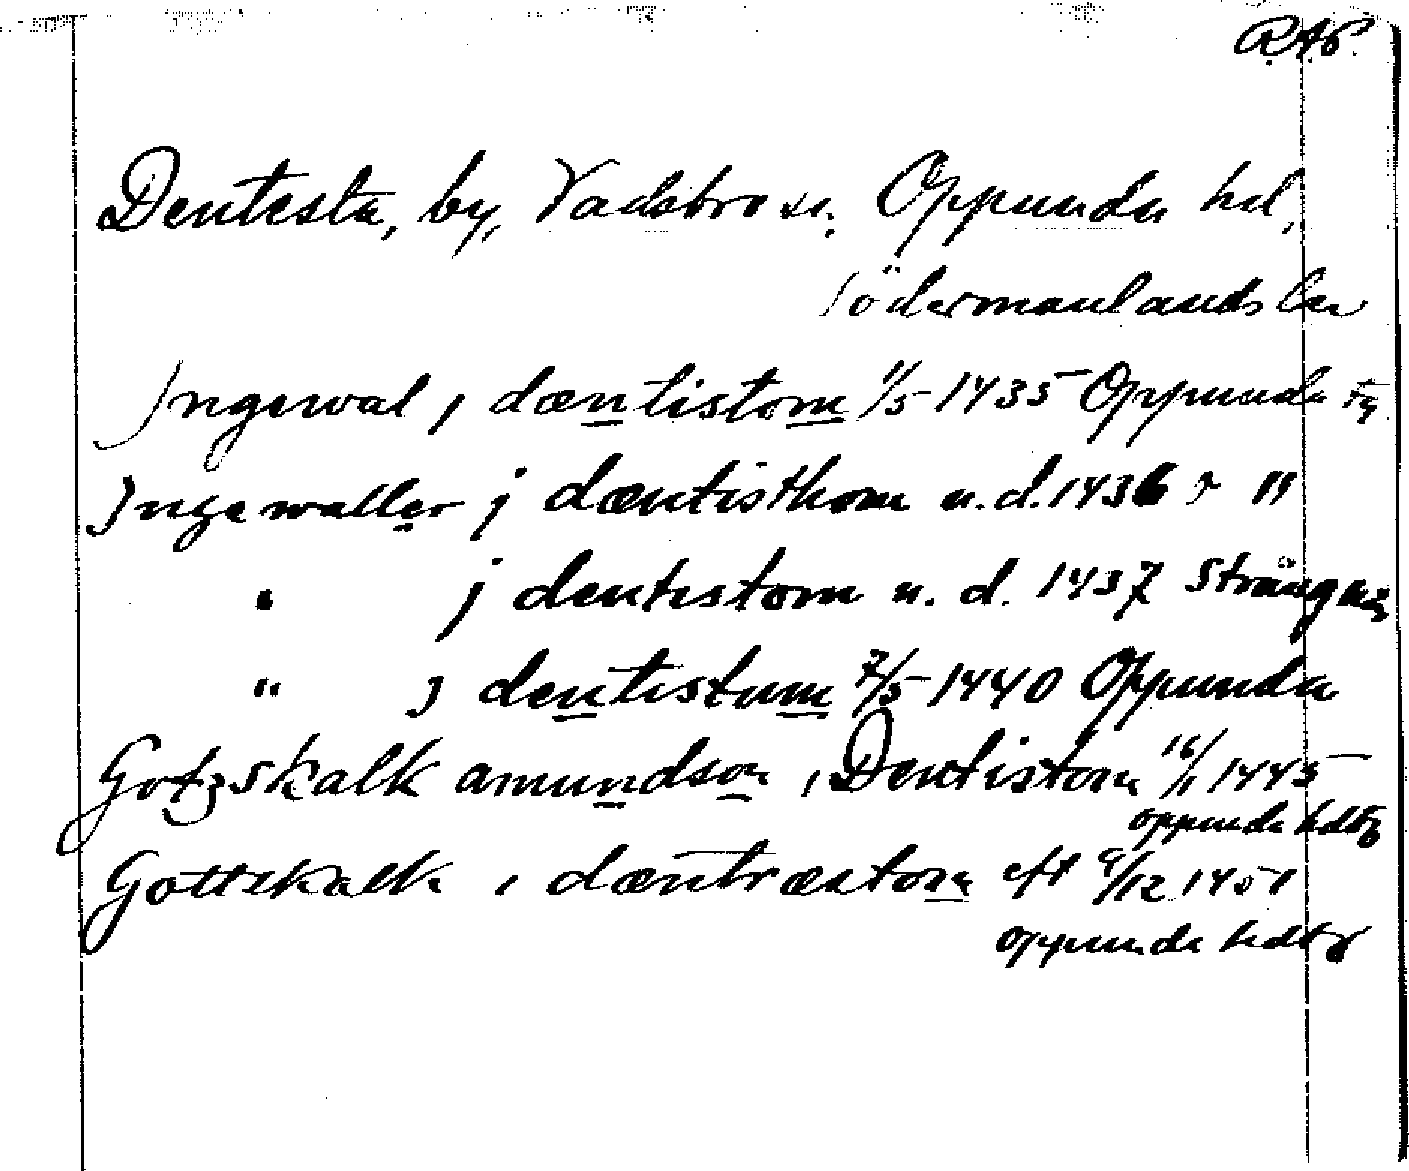 R.A.P.
Dentesta, by, Vadsbro sn. Oppunda hd,
Södermanlands län
Ingewal i dæntistom 1/5 1435 Oppunda tg
Ingewaller j dæntisthom u. d. 1436 "
" j dentistom u. d. 1437 Strängnäs
" j dentistum 7/5 1440 Oppunda
Gotzskalk amundson i Dentistom 16/1 1445
oppunda hdtg
Gottskalk i dæntræstom eft 9/12 1451
oppunda hdtg